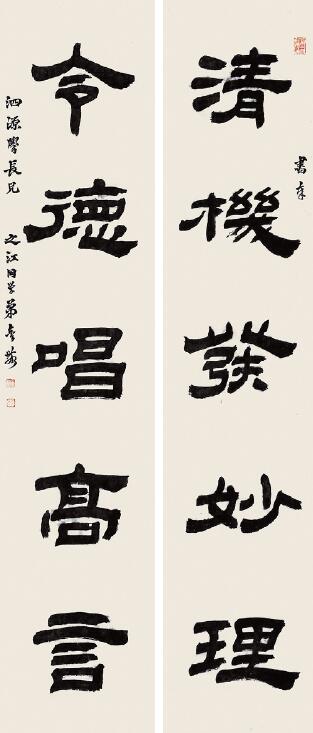 清機發妙理
書奉
令德唱高言
泗源學長兄
之江同學弟